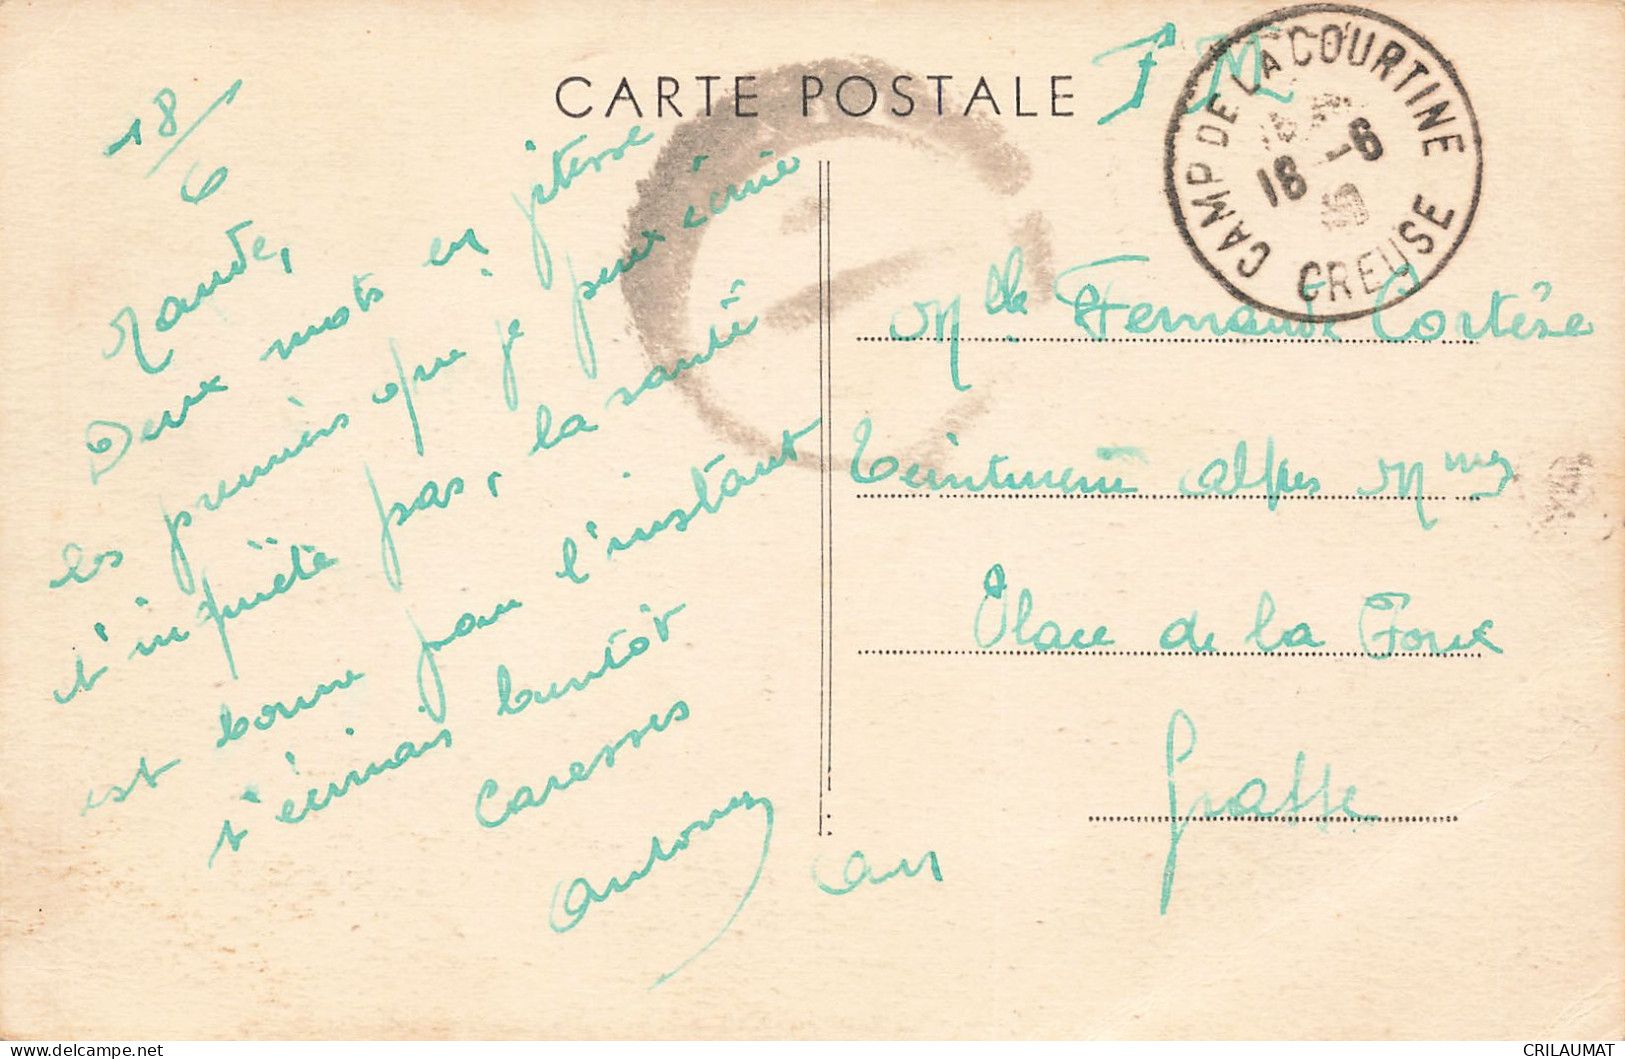 CARTE POSTALE
F M
CAMP DE LA COURTINE
18 -6
CREUSE
18/6
Deux mots en vitesse
les premiers que je peux écrire
t'inquiète pas, la santé
est bonne pour l'instant
t'écrirais bientôt
Caresses
Antony
Mlle Fernande Cortèse
Teinturerie Alpes Mmes
Place de la Foux
Grasse
delcampe.net
CRILAUMAT